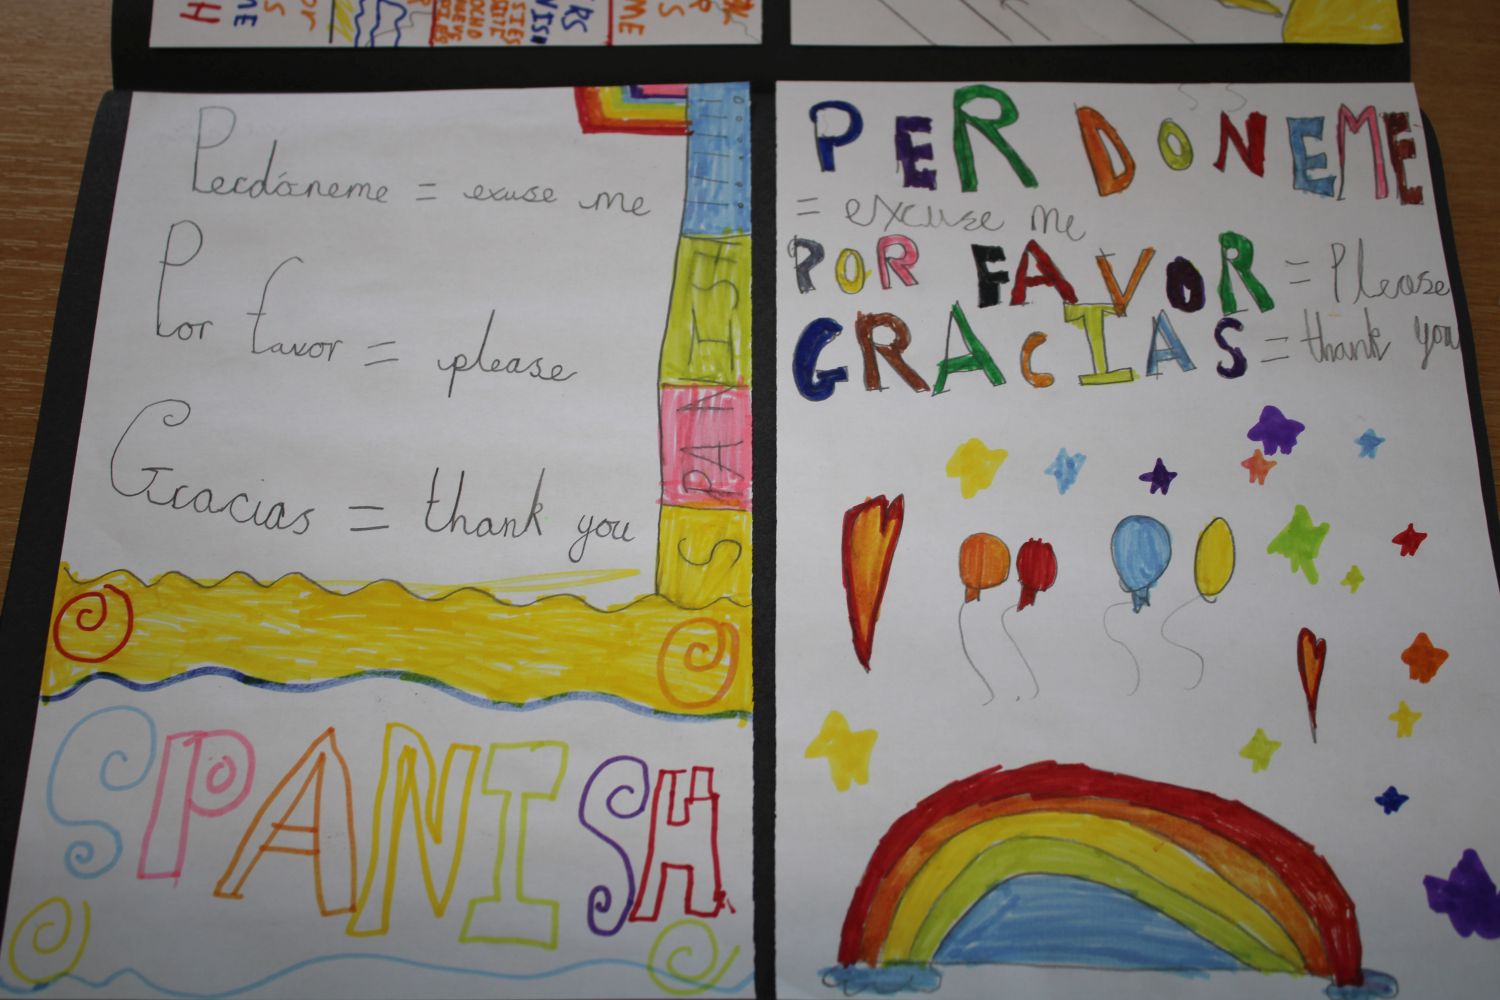 Perdóneme = exuse me
Por favor = please
Gracias = thank you
SPANISH
SPANISH
PERDONEME
= excuse me
POR FAVOR = Please
GRACIAS = thank you